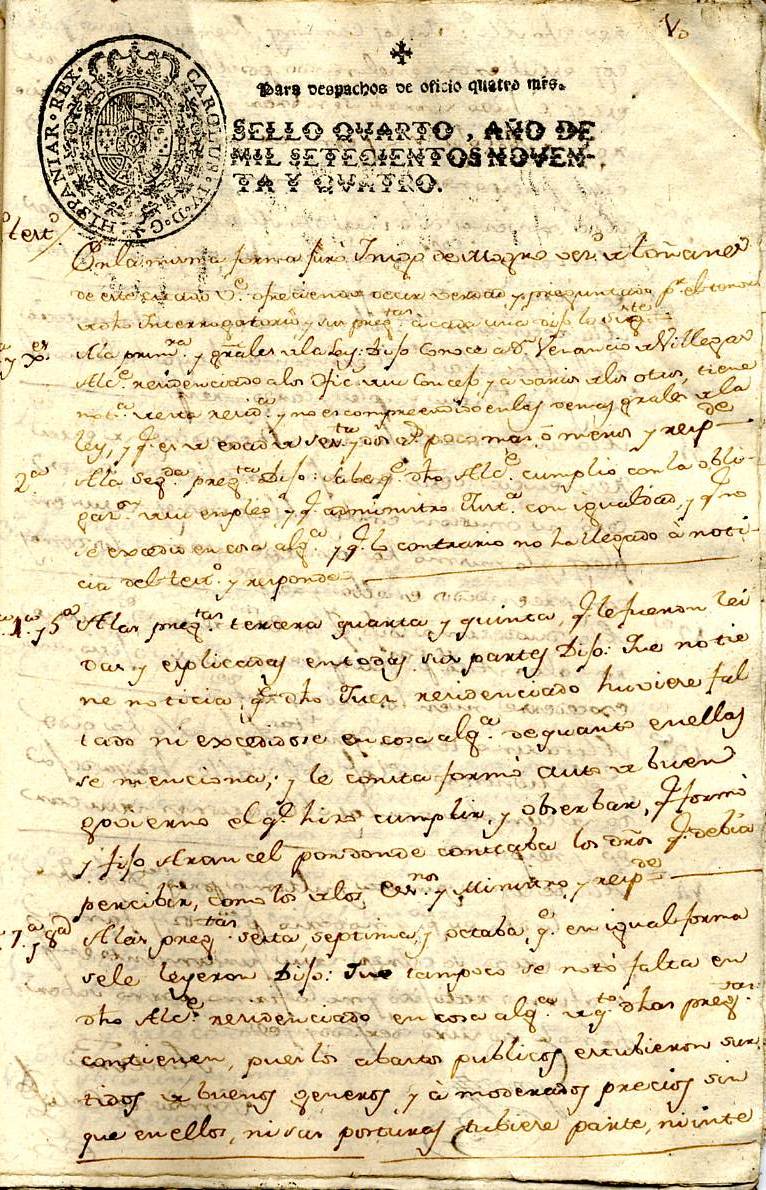 Vo
CAROLUS · IV · D · G · HISPANIAR · REX ·
Para despachos de oficio quatro mrs.
SELLO QVARTO, AÑO DE
MIL SETECIENTOS NOVEN-
TA Y QVATRO.
testº
En la misma forma juró de vezº
de este estado ofreciendo decir verdad y preguntado pr el tenor
dho Interrogatorio y sus pregtas à cada una dijo lo sigte
A la primra y grales de la Ley: Dijo conoce a Dn Venancio de Villegas
Alce residenciado a los ofics de su Concejo y a varios de los otros, tiene
nota de esta resida y no es comprendido en las demas grales de la
ley, y q.e es de edad de y dos as poco mas ó menos y respde
2ª
A la segda pregta Dijo: sabe qe dho Alce cumplio con la obli-
gaon de su empleo y qe administro Justa con igualdad, y qe no
se excedio en cosa alga y qe lo contrario no ha llegado à noti-
cia del testº y responde
4ª y 5ª
A las pregtas tercera quarta y quinta, qe le fueron lei
das y esplicadas en todas sus partes Dijo: Que no tie
ne noticia, qe dho Juez residenciado huviese fal
tado ni excedidose en cosa alga de quanto en ellas
se menciona; y le consta formó auto de buen
govierno el qe hizo cumplir, y obserbar, qe formó
y fijo Arancel por donde constaba los dros qe debia
percibir, como los de los Esnos y Ministro y respde
7ª y 8ª
A las pregtas sesta, septima, y octaba, qe en igual forma
se le leyeron Dijo: Que tampoco se notó falta en
dho Alce residenciado en cosa alga de qto dhas pregtas
contienen, pues los abastos publicos estubieron sur-
tidos de buenos generos y à moderados precios sin
que en ellos, ni sus posturas tubiese parte, ni inte